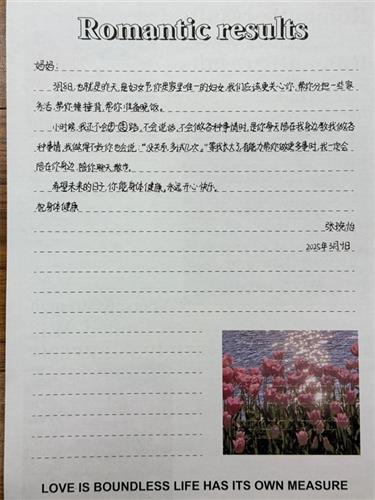 Romantic results
妈妈:
3月8日,也就是昨天,是妇女节,你是家里唯一的妇女,我们应该更关心你,帮你分担一些家
务活,帮你捶捶背,帮你准备晚饭。
小时候,我还不会走路,不会说话,不会做各种事情时,是你每天陪在我身边教我做各
种事情,我做得不好你也会说:“没关系,多试几次。”等我长大了,有能力帮你做更多事时,我一定会
陪在你身边,陪你聊天散步。
希望未来的日子,你能身体健康,永远开心快乐。
祝身体健康
张婉怡
2025年3月9日
LOVE IS BOUNDLESS LIFE HAS ITS OWN MEASURE